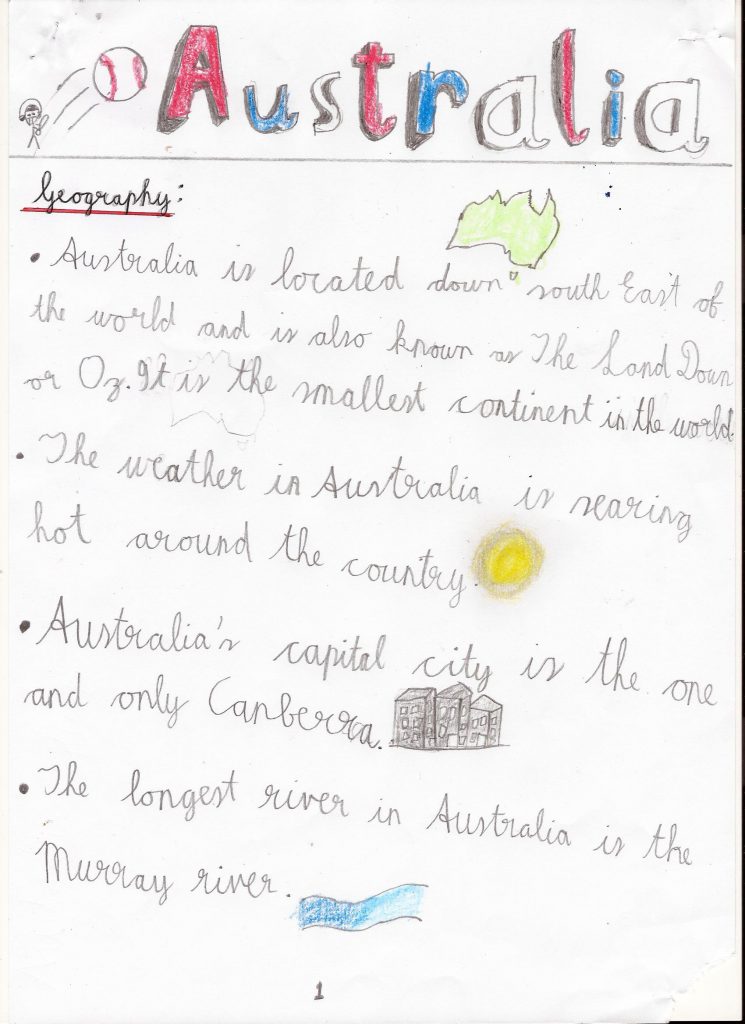 Australia
Geography:
• Australia is located down south East of
the world and is also known as The Land Down
or Oz. It is the smallest continent in the world.
• The weather in Australia is searing
hot around the country.
• Australia's capital city is the one
and only Canberra.
• The longest river in Australia is the
Murray river.
1